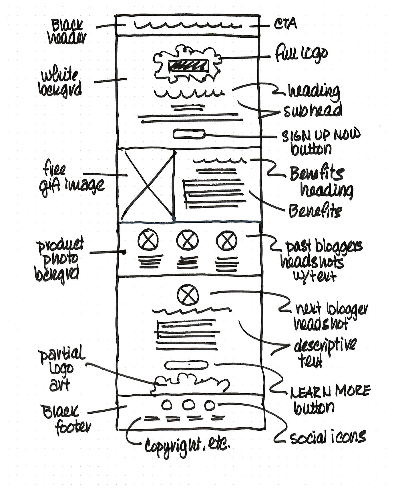 Black
header
CTA
full logo
white
bckgrd
heading
subhead
SIGN UP NOW
button
free
gift image
Benefits
heading
Benefits
product
photo
bckgrd
past bloggers
headshots
w/text
next blogger
headshot
descriptive
text
partial
logo
art
LEARN MORE
button
Black
footer
social icons
Copyright, etc.